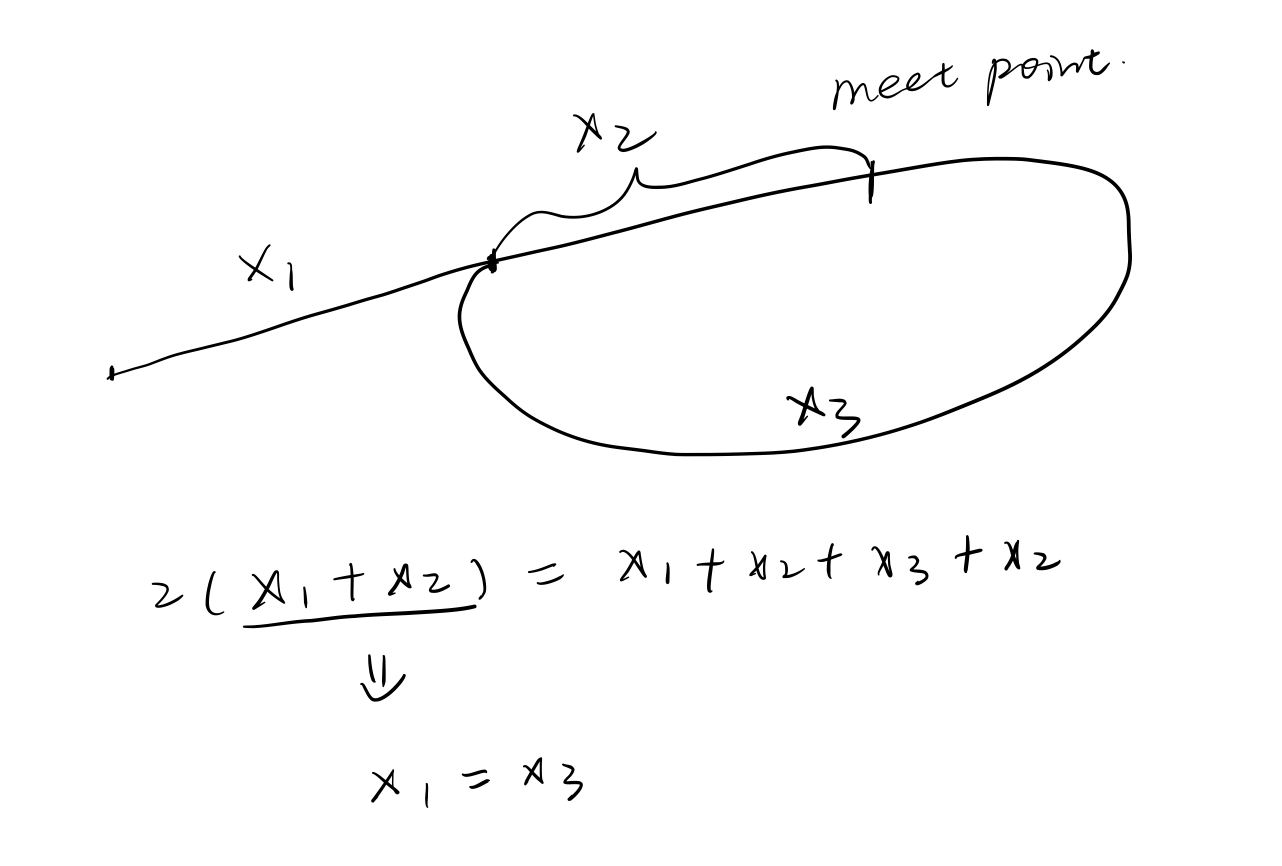 meet point.
x2
x1
x3
2(x1+x2) = x1+x2+x3+x2
⇓
x1 = x3